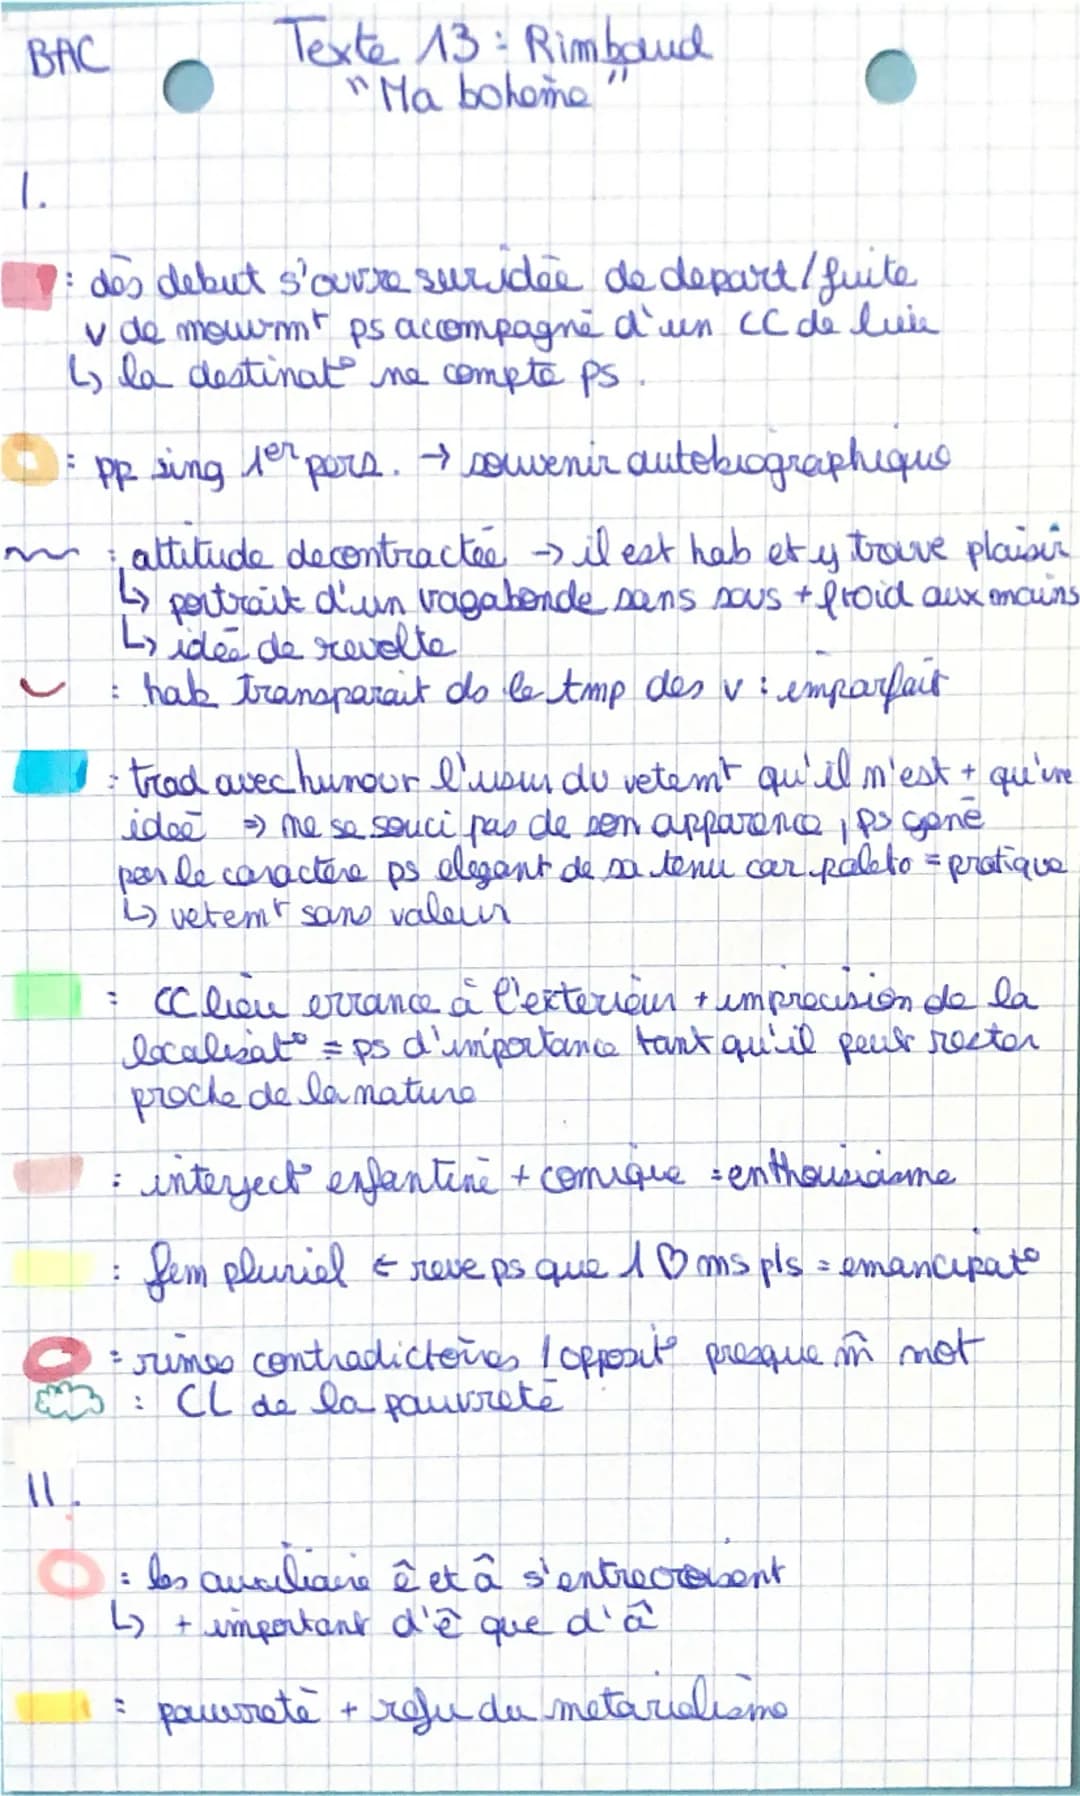 BAC
Texte 13 : Rimbaud
"Ma bohème"
I.
: dès debut s'ouvre sur idée de depart / fuite
v de mouvmt ps accompagné d'un CC de lieu
↳ la destinat° ne compte ps.
: pp sing 1er pers. → souvenir autobiographique
: attitude decontractée → il est hab et y trouve plaisir
↳ portrait d'un vagabonde sans sous + froid aux mains
↳ idée de revolte
: hab transparait ds le tmp des v : imparfait
: trad avec humour l'usur du vetemt qu'il n'est + qu'une
idée ⇒ ne se souci pas de son apparence, ps gené
par le caractère ps elegant de sa tenu car paleto = pratique
↳ vetemt sans valeur
: CC lieu errance à l'exterieur + imprecision de la
localisat° = ps d'importance tant qu'il peut rester
proche de la nature
: interject° enfantine + comique = enthousiasme
: fem pluriel ← reve ps que 1 ♡ ms pls = emancipat°
: rimes contradictoires / opposit° presque m̂ mot
: CL de la pauvreté
II.
: les auxiliaire ê et â s'entrecroisent
↳ + important d'ê que d'â
: pauvreté + refu du metarialisme